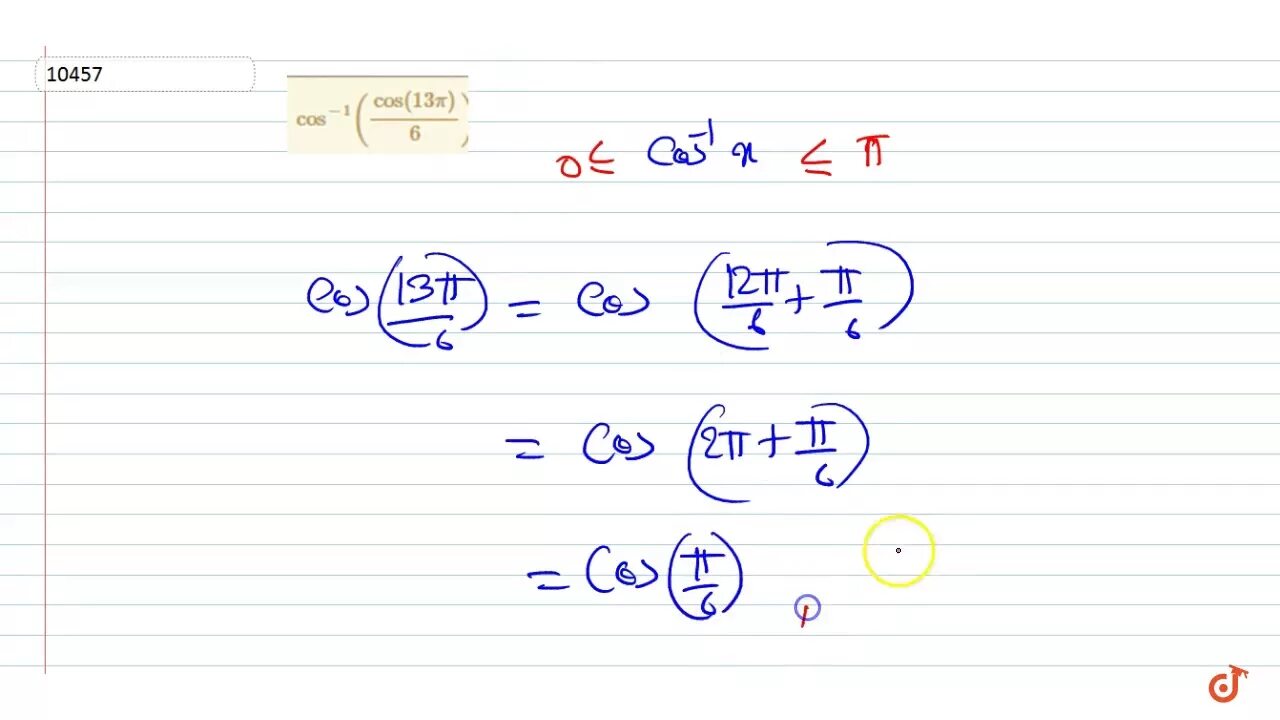 10457
cos⁻¹(cos(13π)/6)
0 ≤ Cos⁻¹ x ≤ π
Cos(13π/6) = Cos(12π/6 + π/6)
= Cos(2π + π/6)
= Cos(π/6)